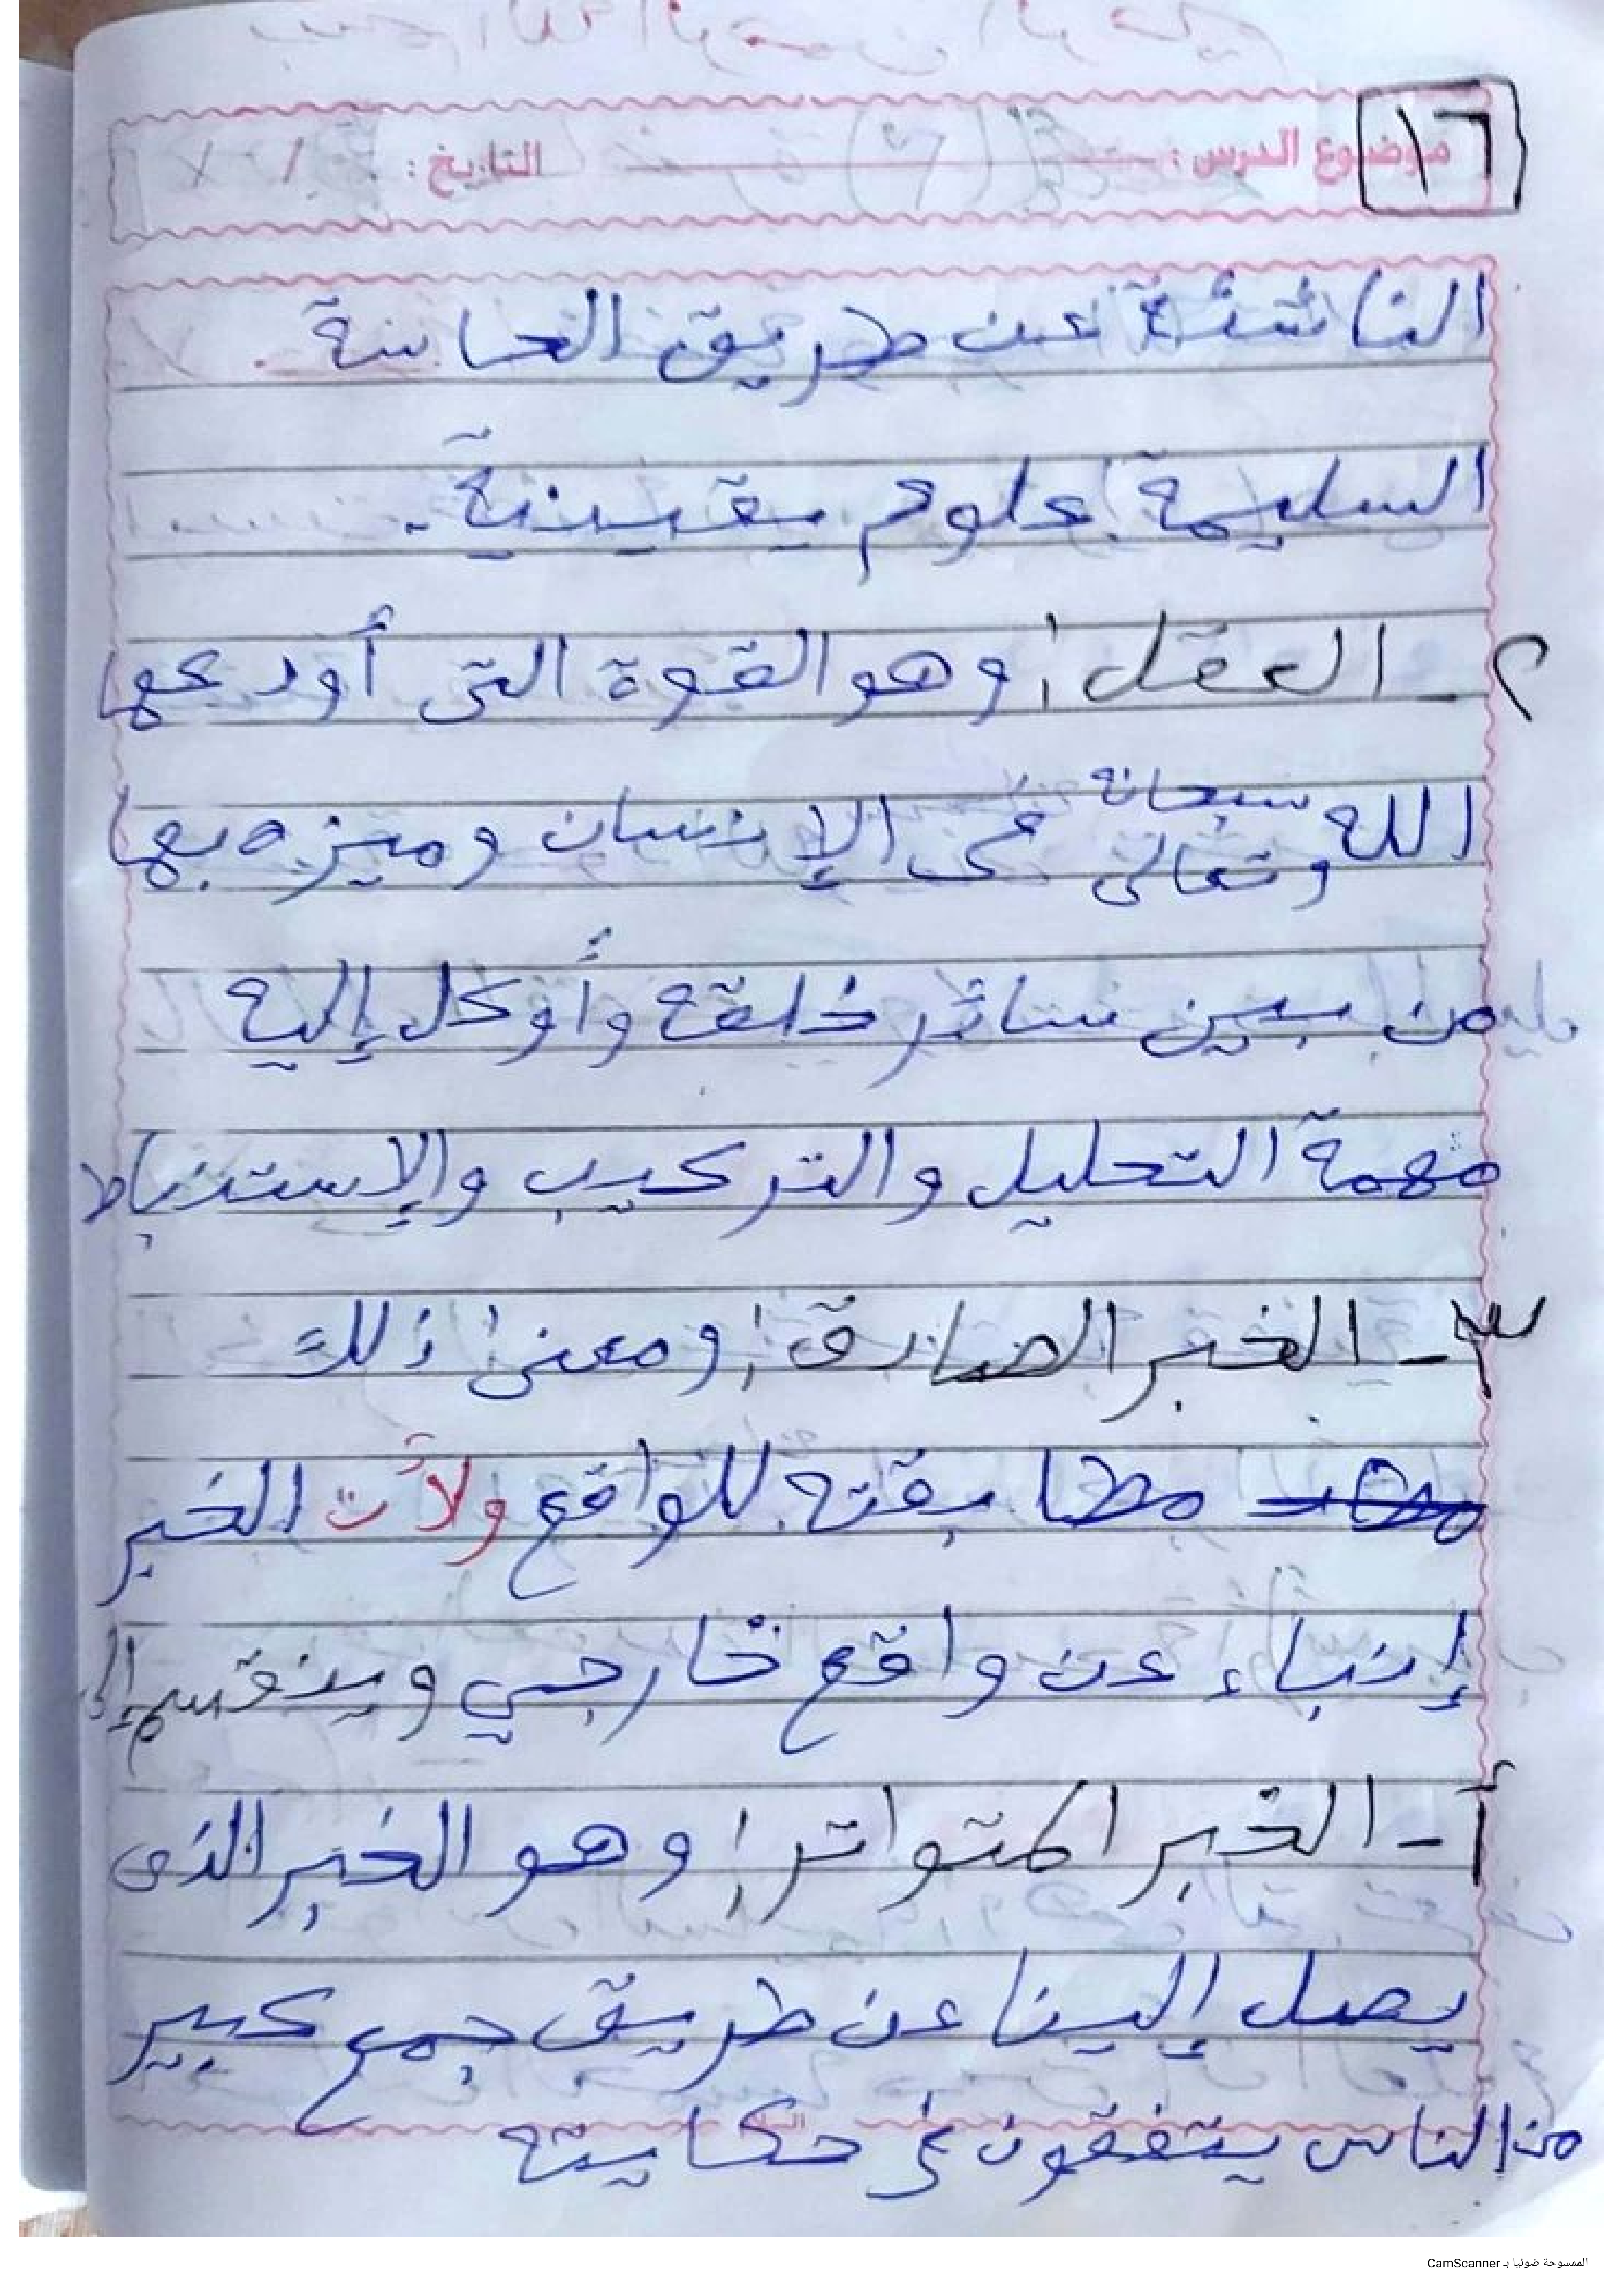 ١٦
موضوع الدرس : التاريخ : / /
الناشئة عن طريق الحاسة
السليمة علوم يقينية .
٢ - العقل : وهو القوة التى أودعها
الله سبحانه وتعالى فى الإنسان وميزه بها
من بين سائر خلقه وأوكل إليه
مهمة التحليل والتركيب والإستنباط
٣ - الخبر الصادق : ومعنى ذلك
مطابقته للواقع ولأن الخبر
إنباء عن واقع خارجي وينقسم إلى
أ - الخبر المتواتر : وهو الخبر الذى
يصل إلينا عن طريق جمع كبير
من الناس يتفقون فى حكايته
الممسوحة ضوئيا بـ CamScanner